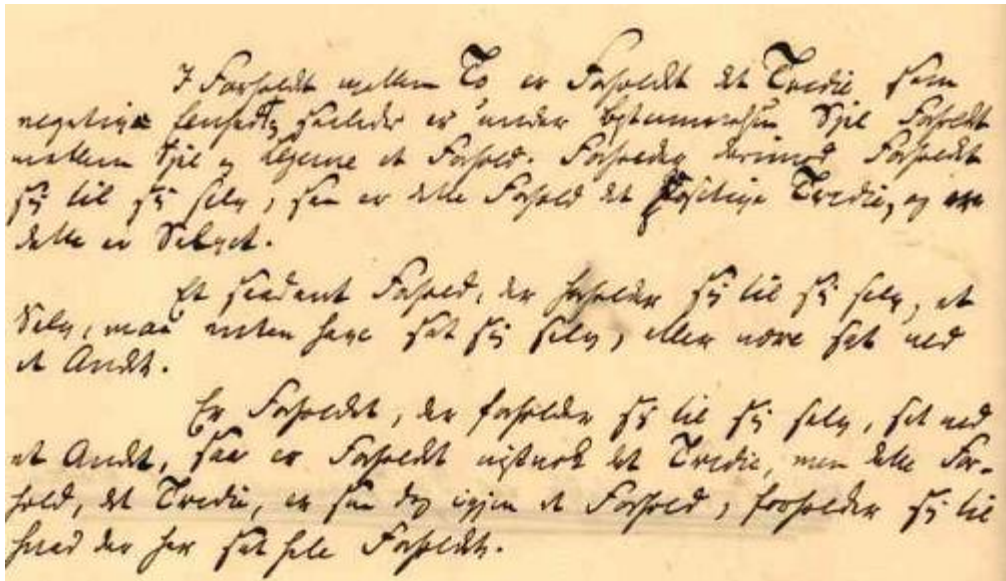 I Forholdet mellem To er Forholdet det Tredie som
negativ Eenhed saaledes er under Bestemmelsen Sjel Forholdet
mellem Sjel og Legeme et Forhold. Forholder derimod Forholdet
sig til sig selv, saa er dette Forhold det positive Tredie, og
dette er Selvet.
Et saadant Forhold, der forholder sig til sig selv, et
Selv, maa enten have sat sig selv, eller være sat ved
et Andet.
Er Forholdet, der forholder sig til sig selv, sat ved
et Andet, saa er Forholdet vistnok det Tredie, men dette For-
hold, det Tredie, er saa dog igjen et Forhold, forholder sig til
hvad der har sat hele Forholdet.